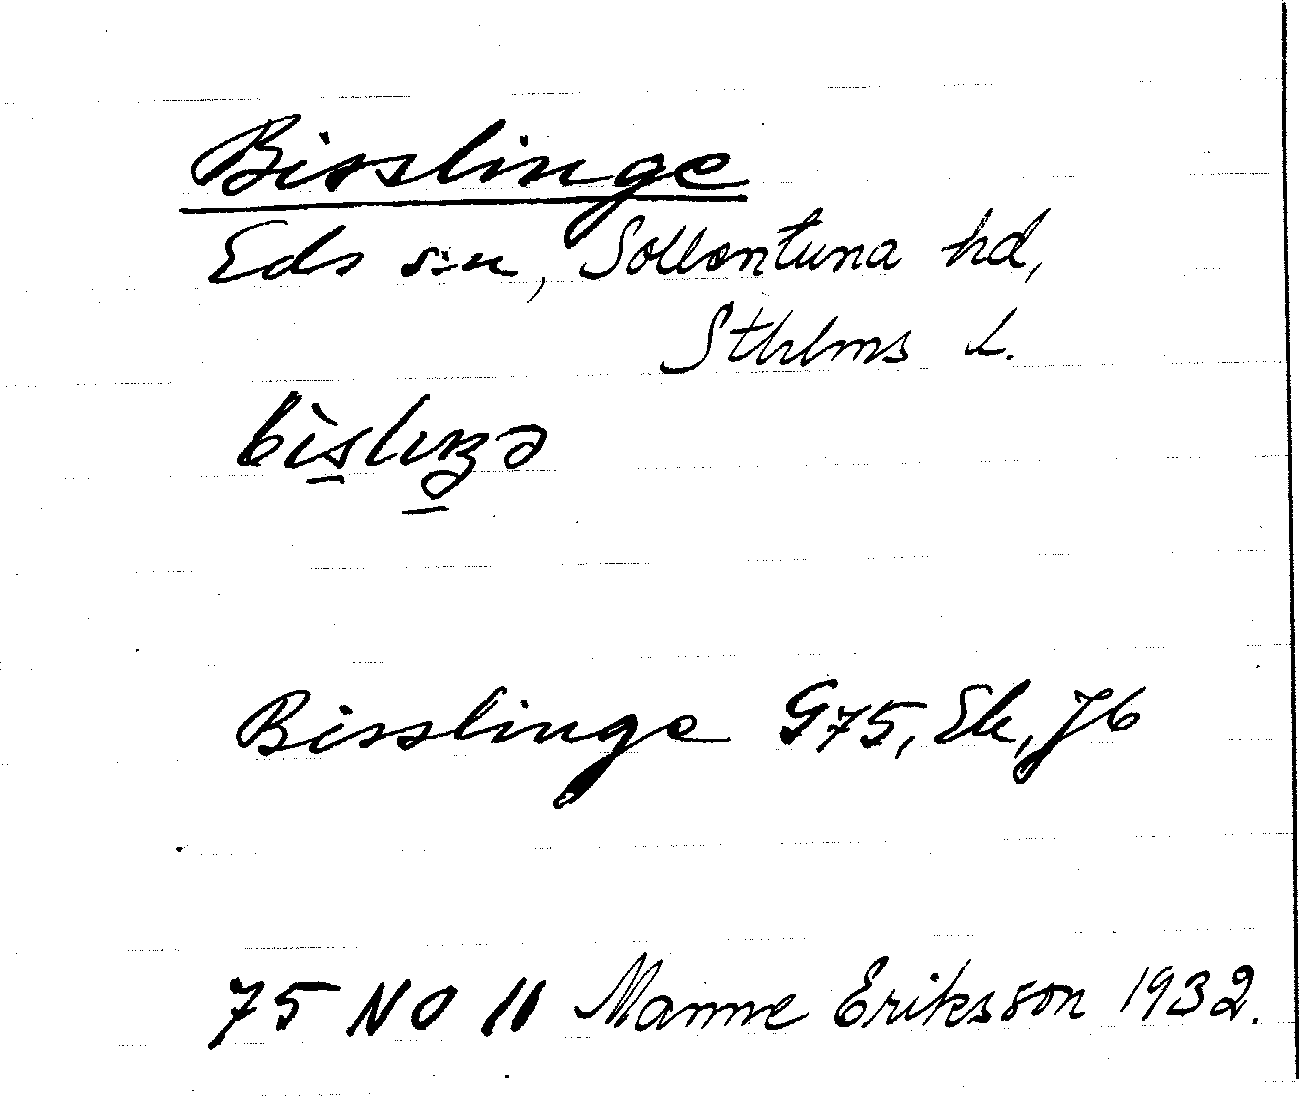 Bisslinge
Eds sn, Sollentuna hd,
Sthlms l.
bìslıŋə
Bisslinge G75, Ek, Jb
75 NO 11 Manne Eriksson 1932.